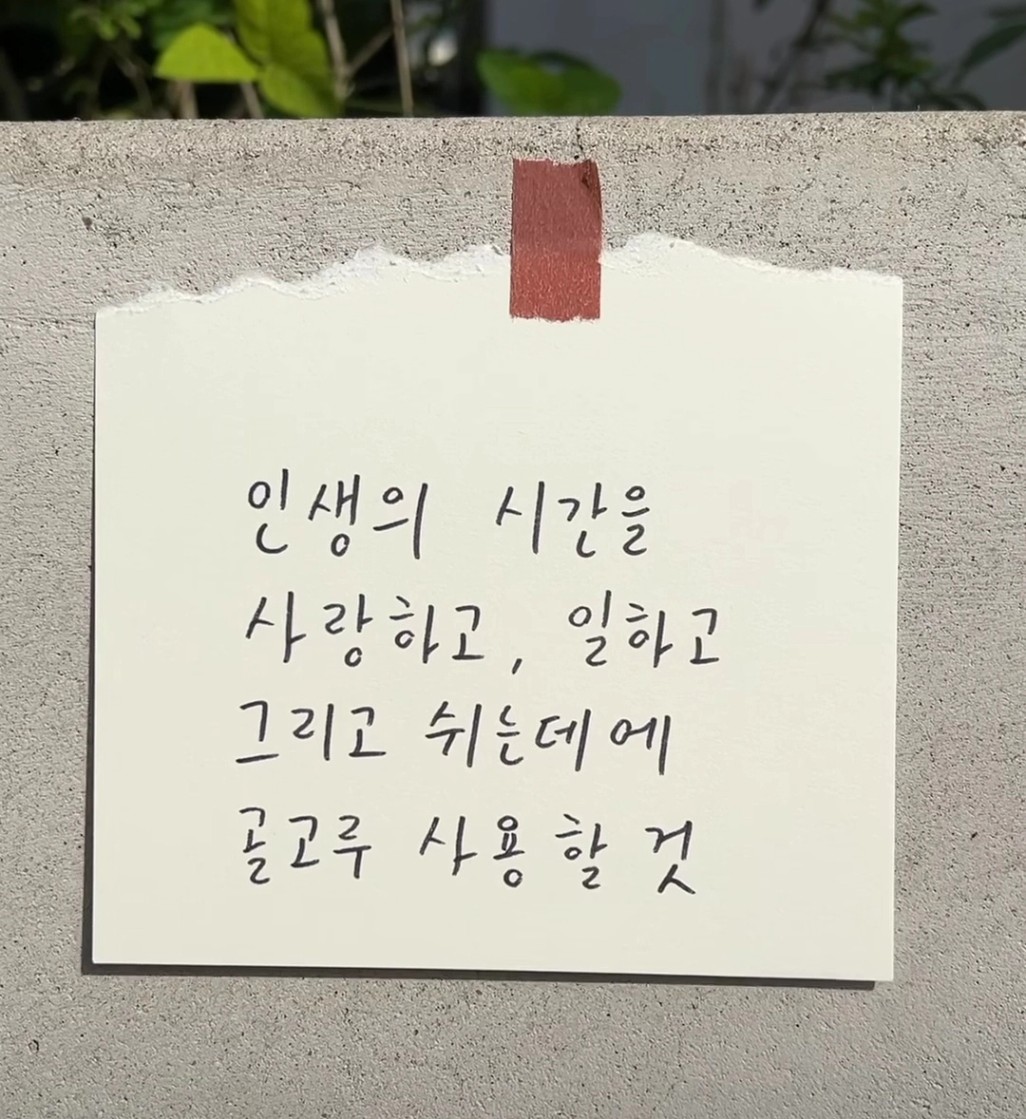 인생의 시간을
사랑하고, 일하고
그리고 쉬는데에
골고루 사용할 것